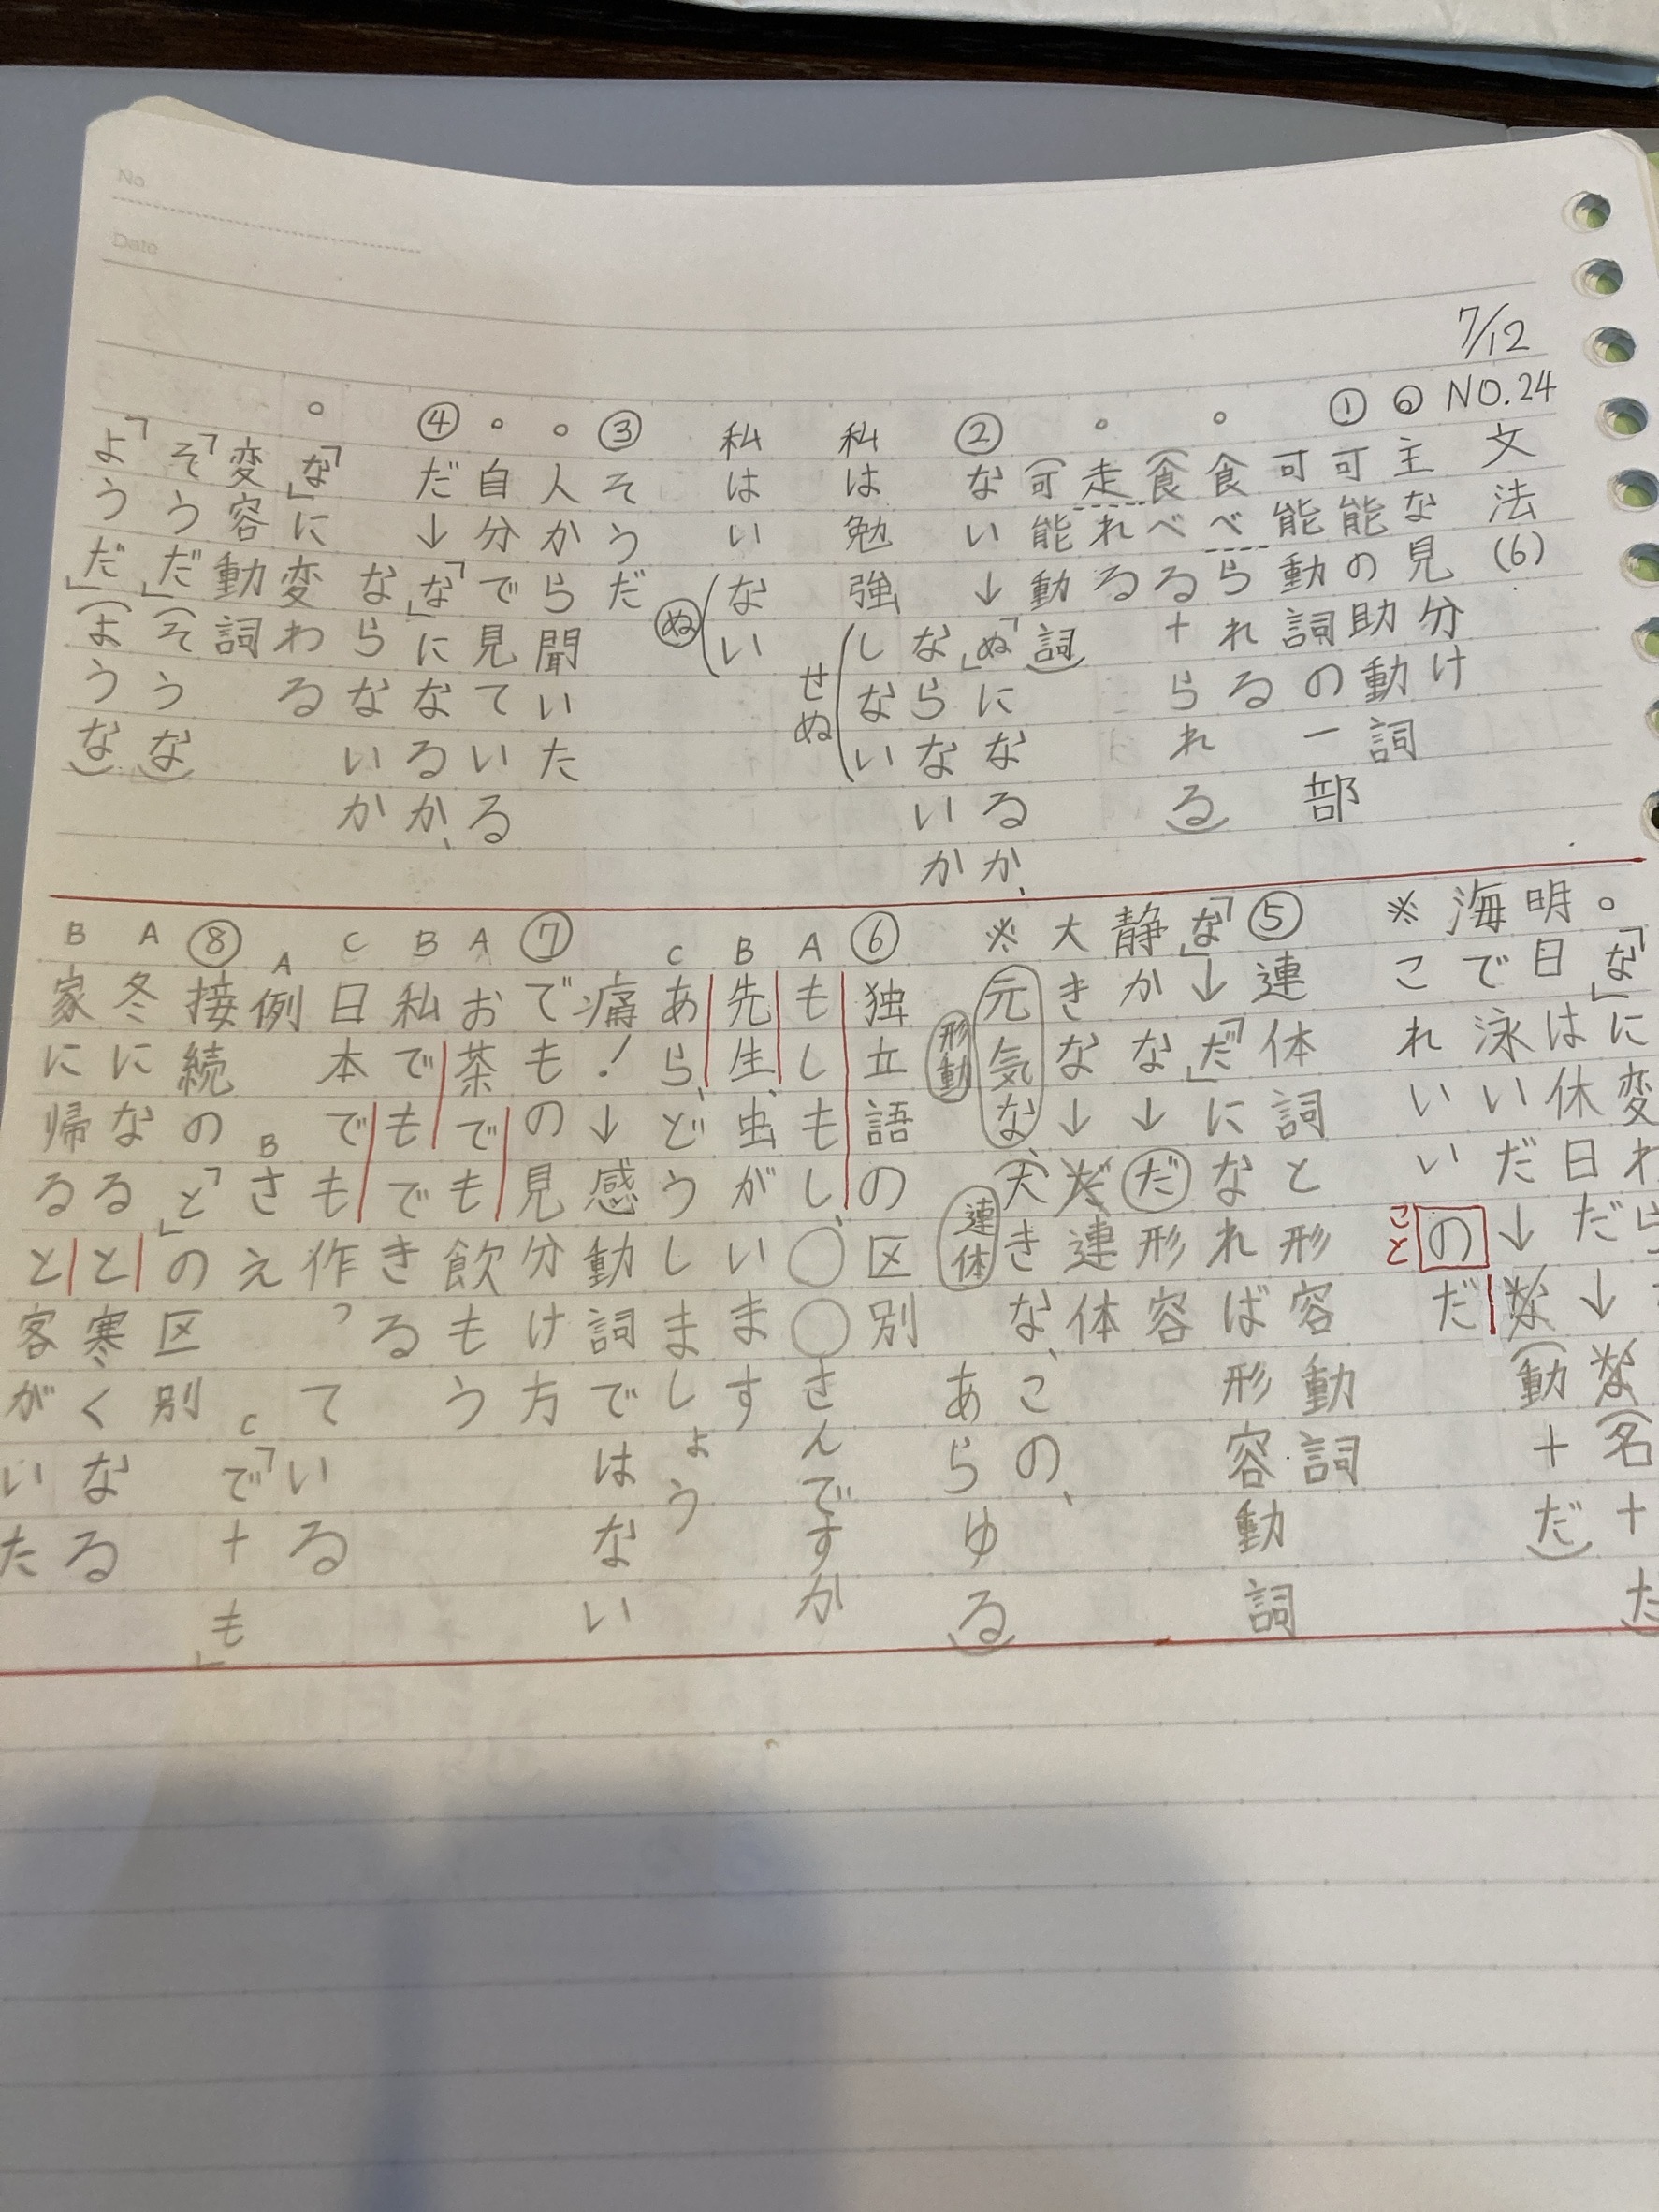 No.
Date
7/12
NO.24 文法(6)
◎主な見分け
①可能の助動詞
可能動詞の一部
。食べられる
(食べる+られる)
。走れる
(可能動詞)
②ない→「ぬ」になるか、
ならないか
私は勉強(しない
せぬ
私はい(ない
ぬ
③そうだ
。人から聞いた
。自分で見ている
④だ→「な」になるか、
ならないか
。「な」に変わる
変容動詞
「そうだ」(そうな)
「ようだ」(ような)
。「な」に変わら
明日は休日だ→な(名+だ
海で泳いだ→な(動+だ)
※これいいのだ
こと
⑤連体詞と形容動詞
「な」→「だ」になれば形容動詞
静かな→だ形容
大きな→だ連体
※元気な(大きな、この、
形動
あらゆる)
連体
⑥独立語の区別
Aもしもし、〇〇さんですか
B先生、虫がいます
Cあら、どうしましょう
痛!→感動詞ではない
⑦でもの見分け方
Aお茶でも飲もう
B私でもできる
C日本でも作っている
A例 Bさえ C「で+も」
⑧接続の「と」の区別
A冬になると寒くなる
B家に帰ると客がいた